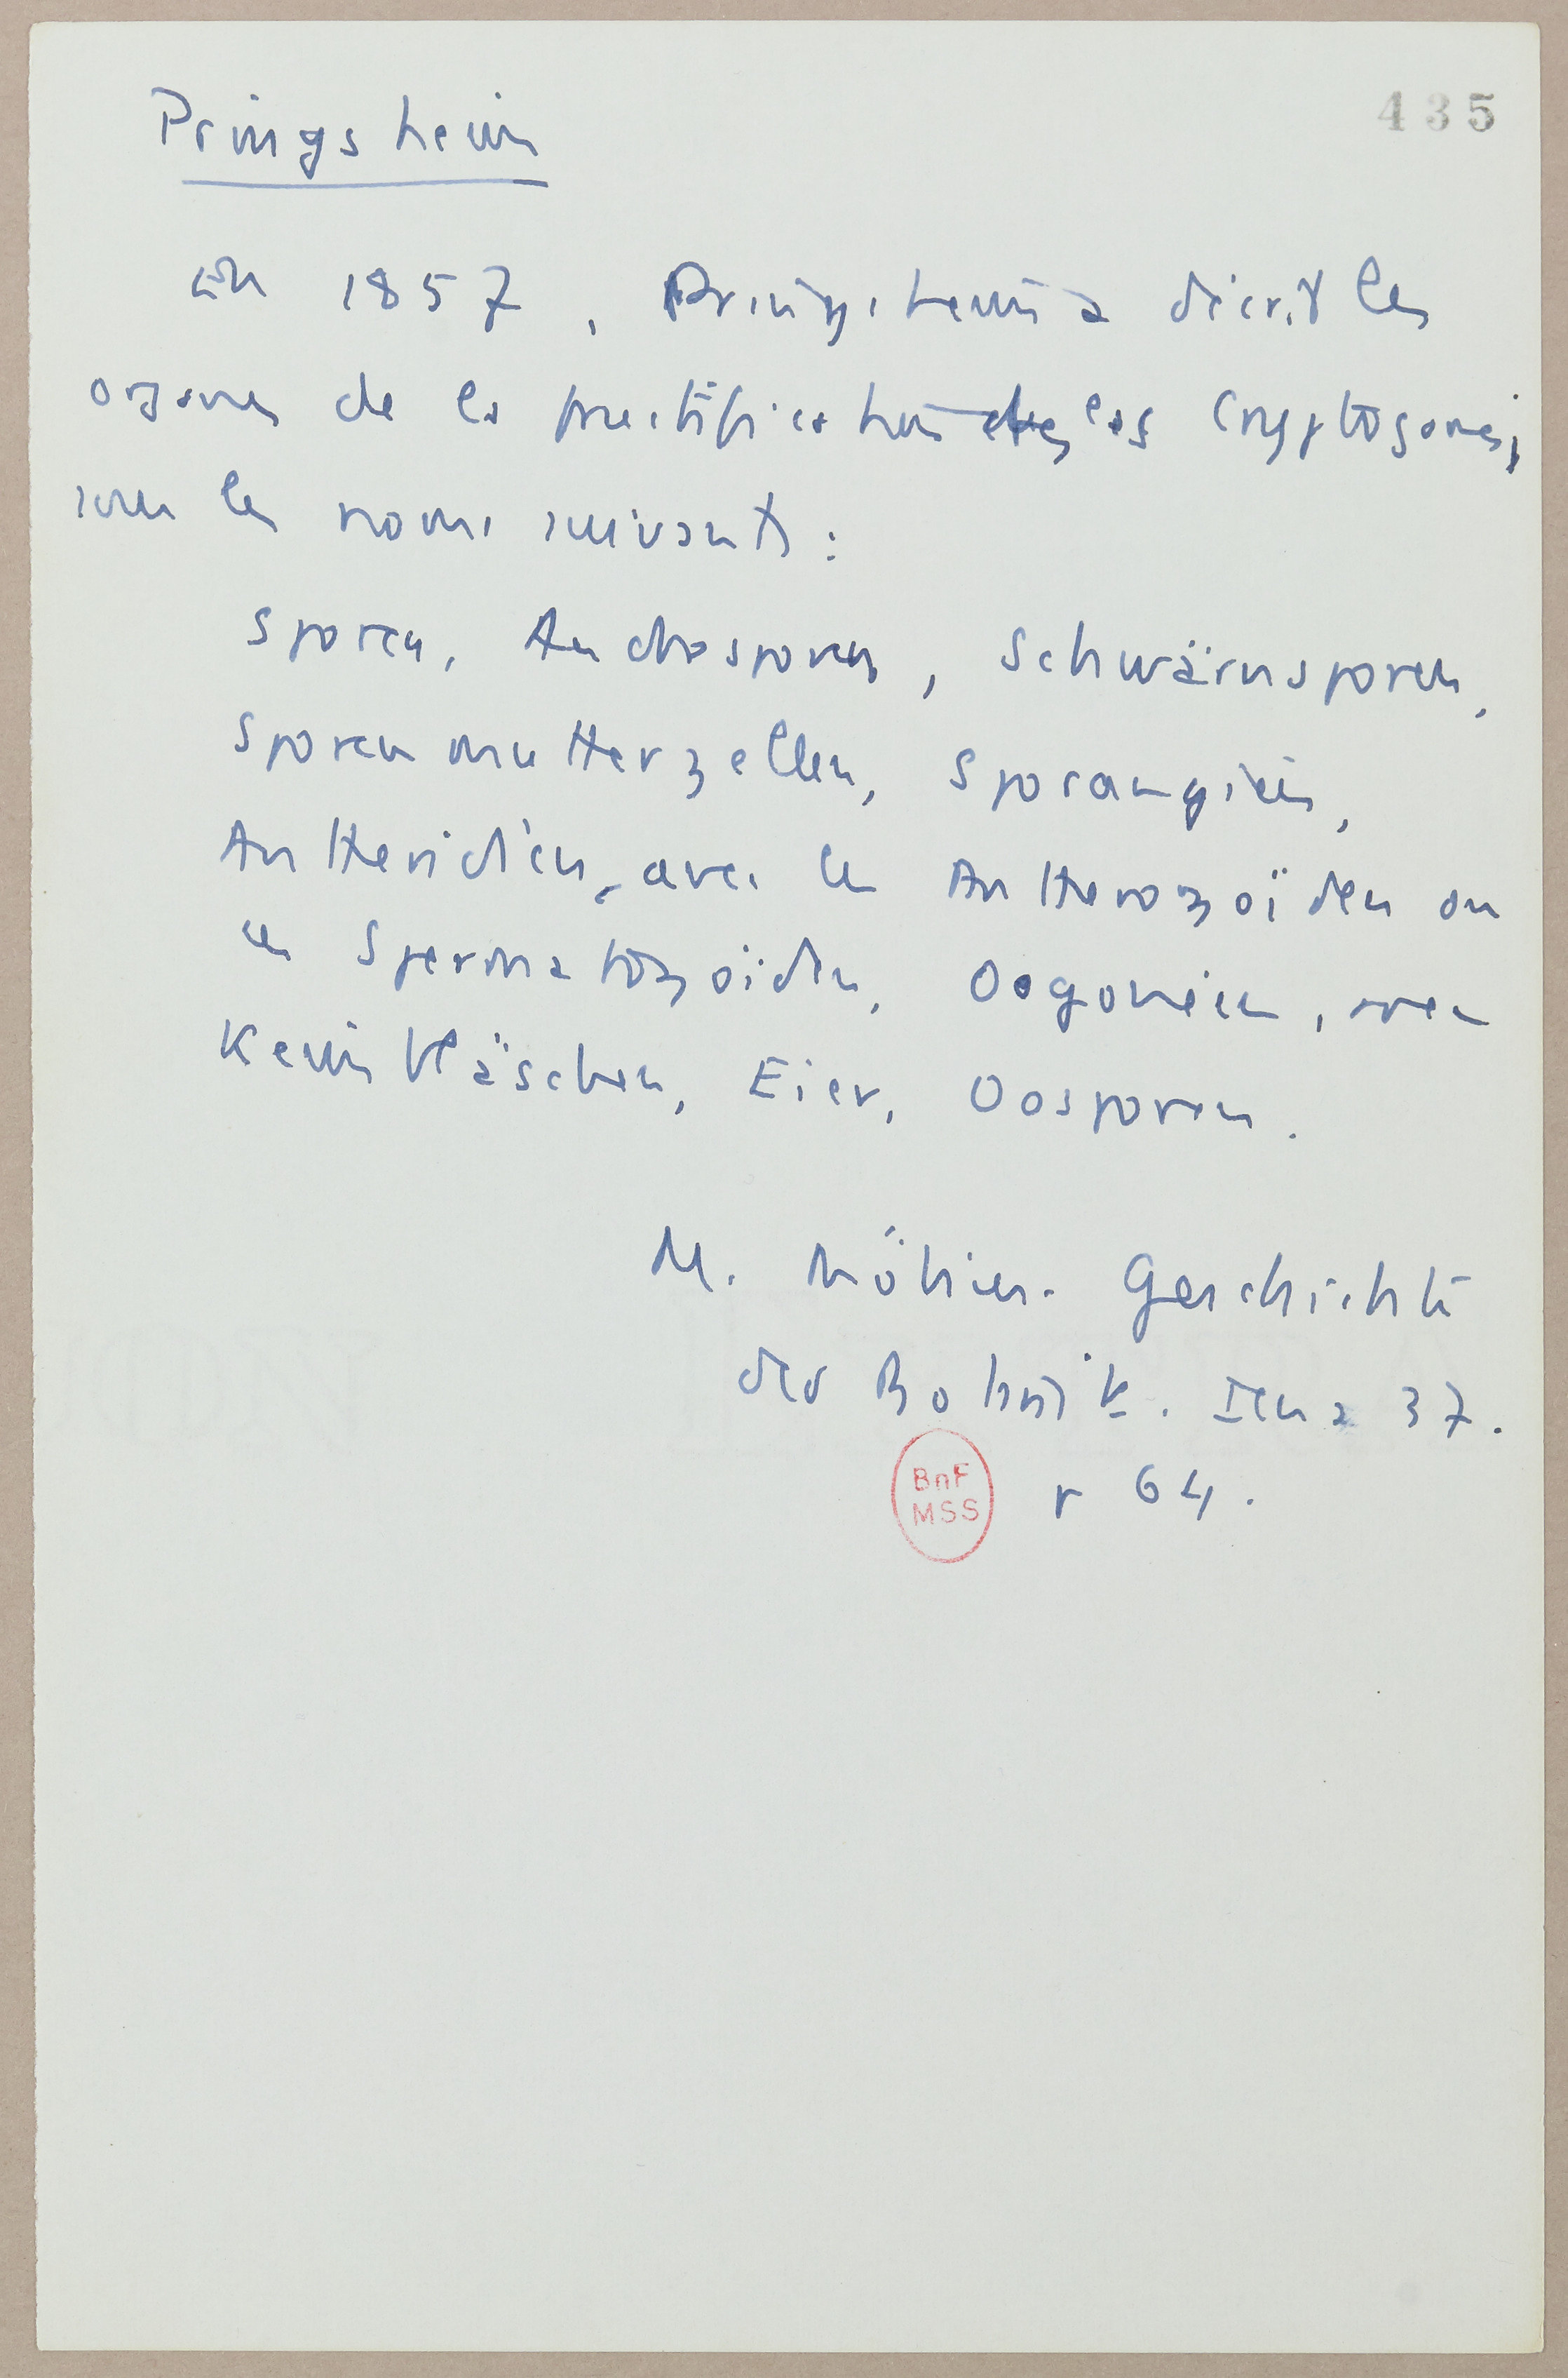 435
Pringsheim
En 1857, Pringsheim a décrit les
organes de la fructification des les Cryptogames,
sous les noms suivants :
Sporen, Androsporen, Schwärmsporen,
Sporenmutterzellen, Sporangien,
Antheridien, avec les Antherozoïden ou
les Spermatozoïden, Oogonien, avec
Keimbläschen, Eier, Oosporen.
M. Möbius. Geschichte
der Botanik. Iena 37.
p 64.
BnF
MSS